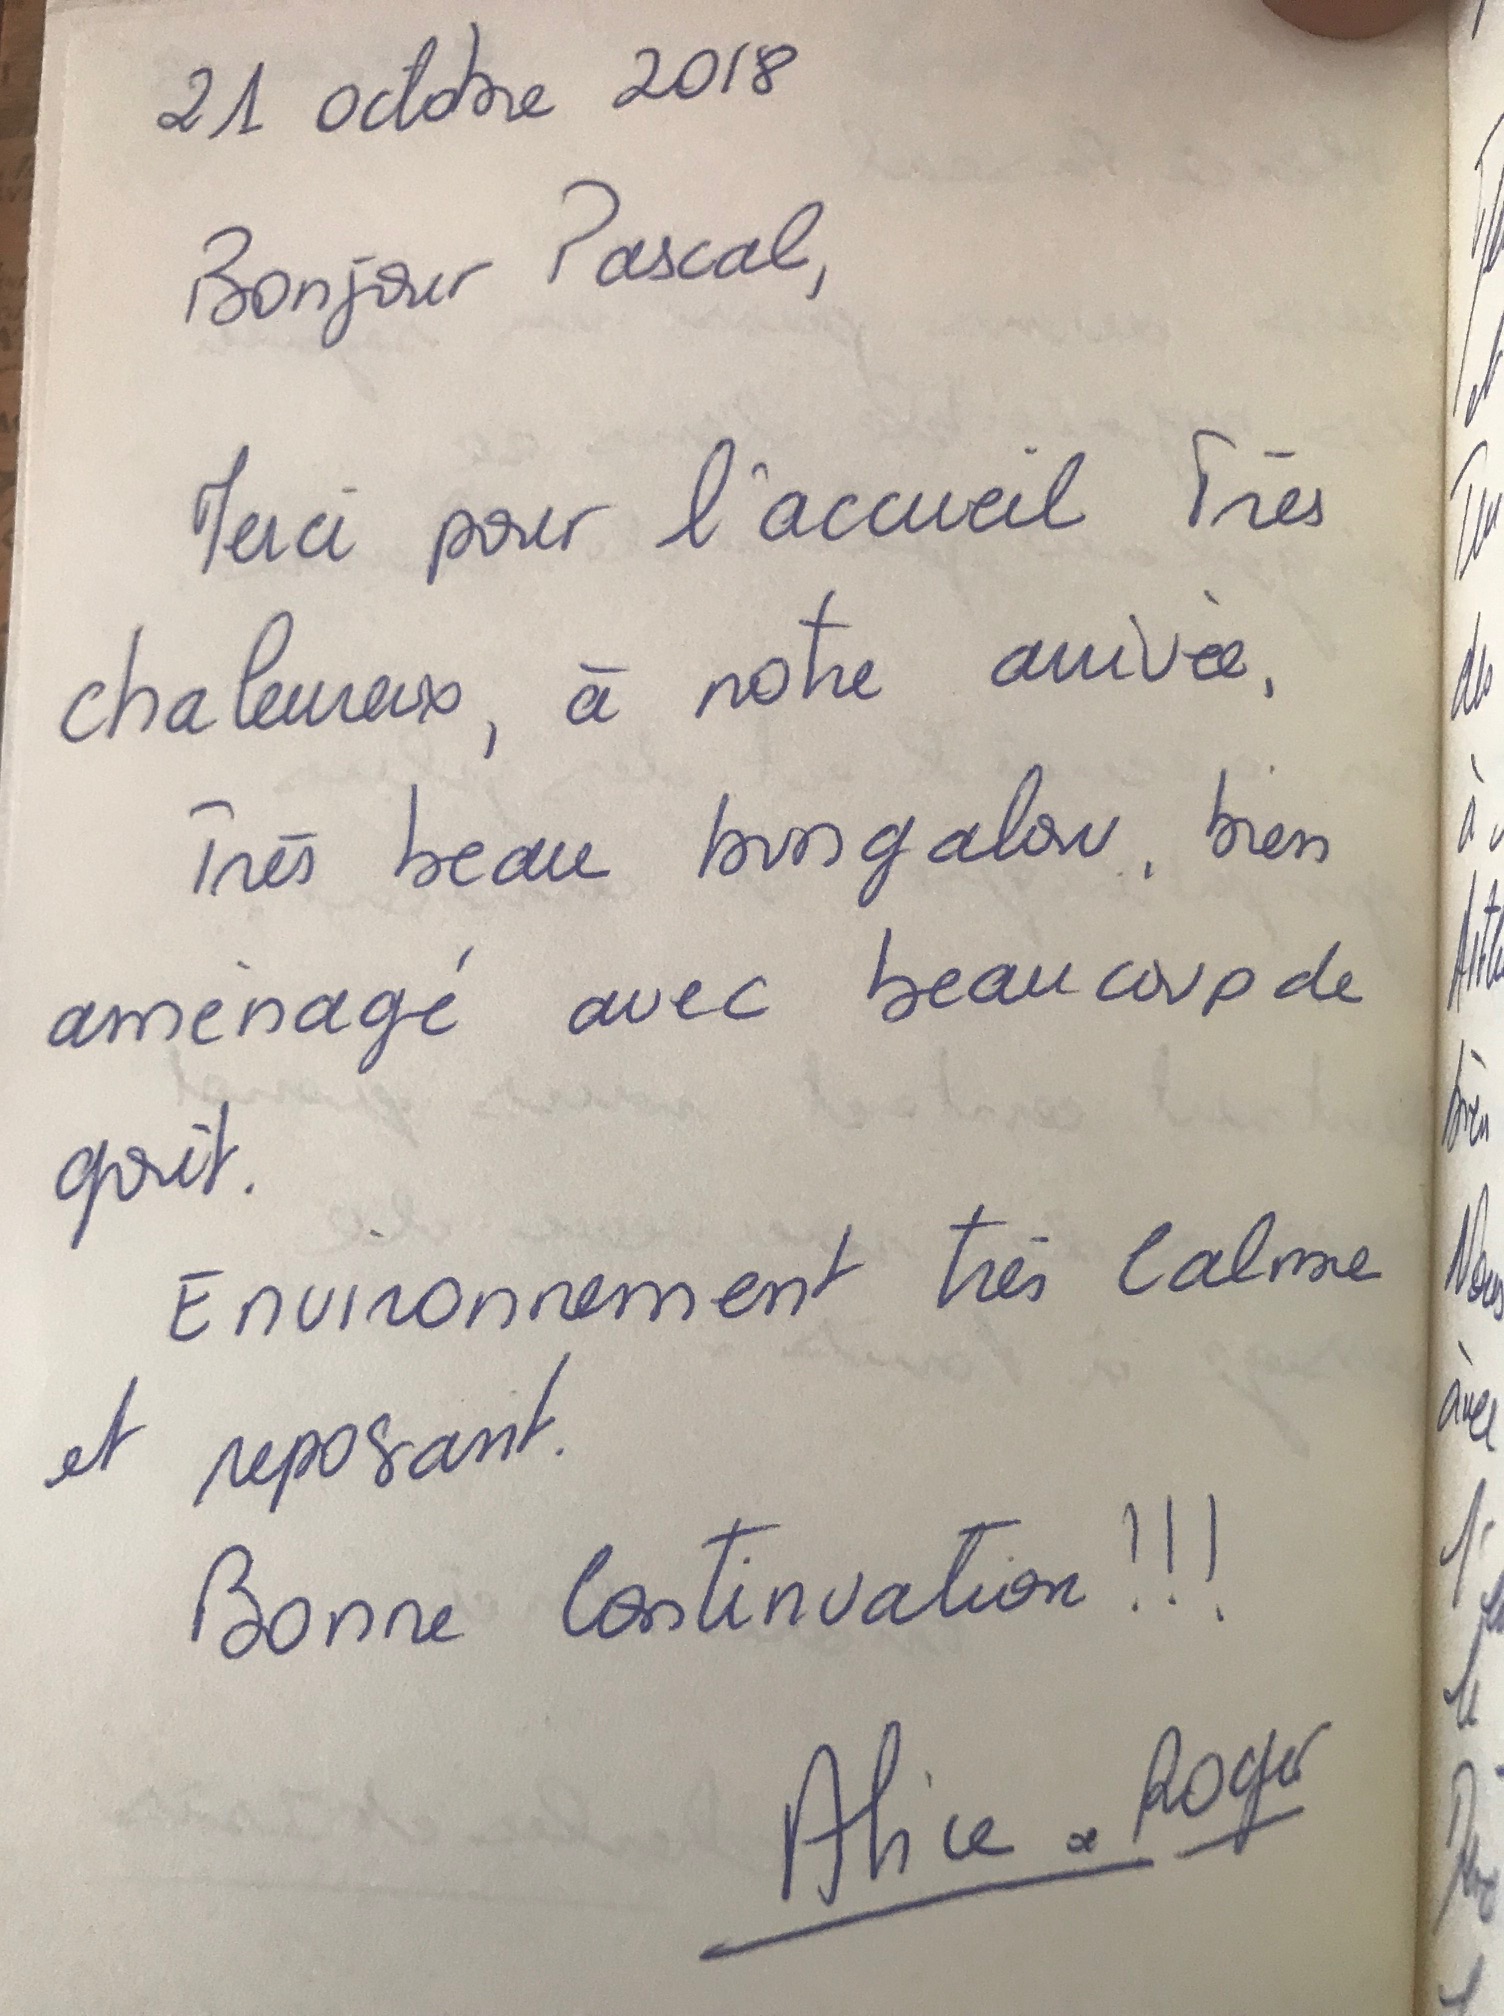 21 octobre 2018
Bonjour Pascal,
Merci pour l'accueil Très
chaleureux, à notre arrivée.
Très beau bungalow, bien
aménagé avec beaucoup de
goût.
Environnement très calme
et reposant.
Bonne Continuation !!!
Alice Roger